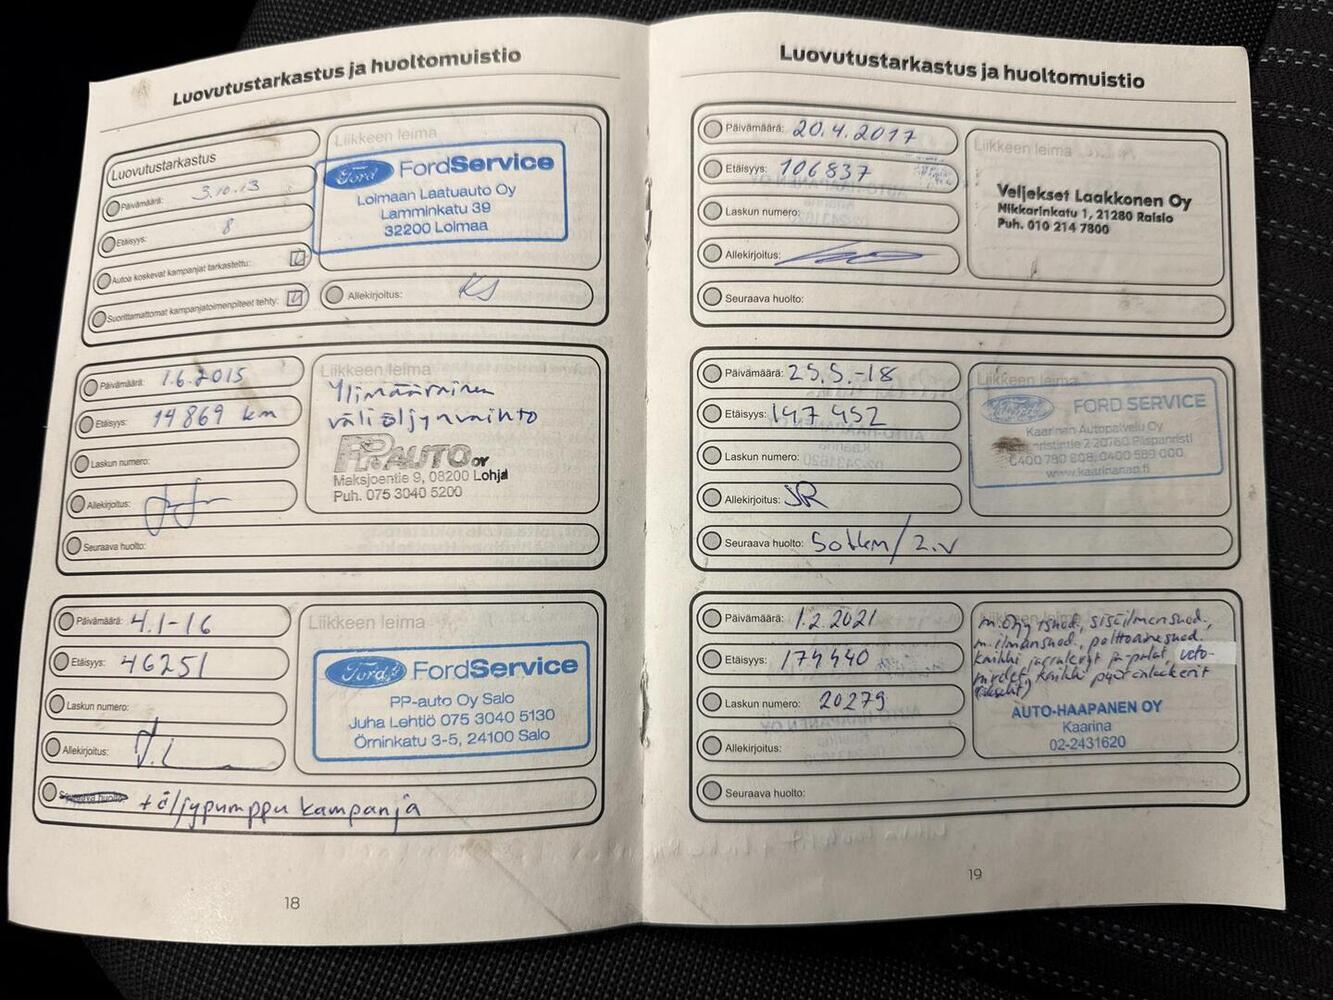 Luovutustarkastus ja huoltomuistio
Luovutustarkastus
Päivämäärä: 3.10.13
Etäisyys: 8
Autoa koskevat kampanjat tarkastettu:
Suorittamattomat kampanjatoimenpiteet tehty:
Liikkeen leima
Ford FordService
Loimaan Laatuauto Oy
Lamminkatu 39
32200 Loimaa
Allekirjoitus: KJ
Päivämäärä: 1.6.2015
Etäisyys: 14869 km
Laskun numero:
Allekirjoitus:
Seuraava huolto:
Liikkeen leima
Ylimääräinen
väliöljynvaihto
PP-AUTO OY
Maksjoentie 9, 08200 Lohja
Puh. 075 3040 5200
Päivämäärä: 4.1-16
Etäisyys: 46251
Laskun numero:
Allekirjoitus:
Seuraava huolto: + öljypumppu kampanja
Liikkeen leima
Ford FordService
PP-auto Oy Salo
Juha Lehtiö 075 3040 5130
Örninkatu 3-5, 24100 Salo
18
Luovutustarkastus ja huoltomuistio
Päivämäärä: 20.4.2017
Etäisyys: 106837
Laskun numero:
Allekirjoitus:
Seuraava huolto:
Liikkeen leima
Veljekset Laakkonen Oy
Nikkarinkatu 1, 21280 Raisio
Puh. 010 214 7800
Päivämäärä: 25.5.-18
Etäisyys: 147452
Laskun numero:
Allekirjoitus: JR
Seuraava huolto: 50tkm/2.v
Liikkeen leima
FORD SERVICE
Kaarinan Autopalvelu Oy
2 20760 Piispanristi
0400 780 808, 0400 589 000
www.kaarinanap.fi
Päivämäärä: 1.2.2021
Etäisyys: 174440
Laskun numero: 20279
Allekirjoitus:
Seuraava huolto:
m.öljy+suod., sisäilmansuod.,
m.ilmansuod., polttoainesuod.
kaikki jarrulevyt ja-palat, veto-
nivelet, kaikki pyöränlaakerit
AUTO-HAAPANEN OY
Kaarina
02-2431620
19